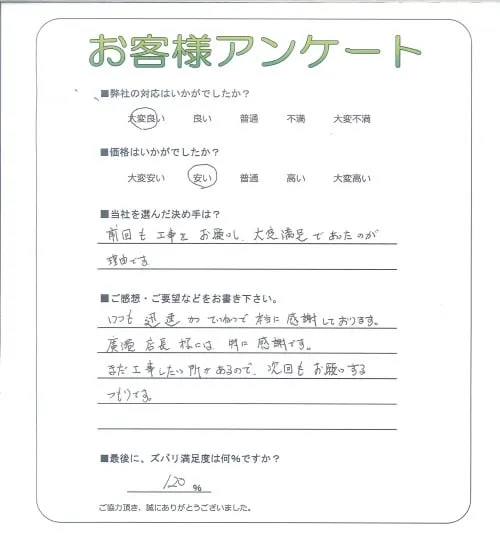 お客様アンケート
■弊社の対応はいかがでしたか？
大変良い 良い 普通 不満 大変不満
■価格はいかがでしたか？
大変安い 安い 普通 高い 大変高い
■当社を選んだ決め手は？
前回も工事をお願いし、大変満足であったのが
理由です。
■ご感想・ご要望などをお書き下さい。
いつも迅速かつていねいで本当に感謝しております。
店長様には特に感謝です。
まだ工事したい所があるので、次回もお願いする
つもりです。
■最後に、ズバリ満足度は何％ですか？
120 ％
ご協力頂き、誠にありがとうございました。